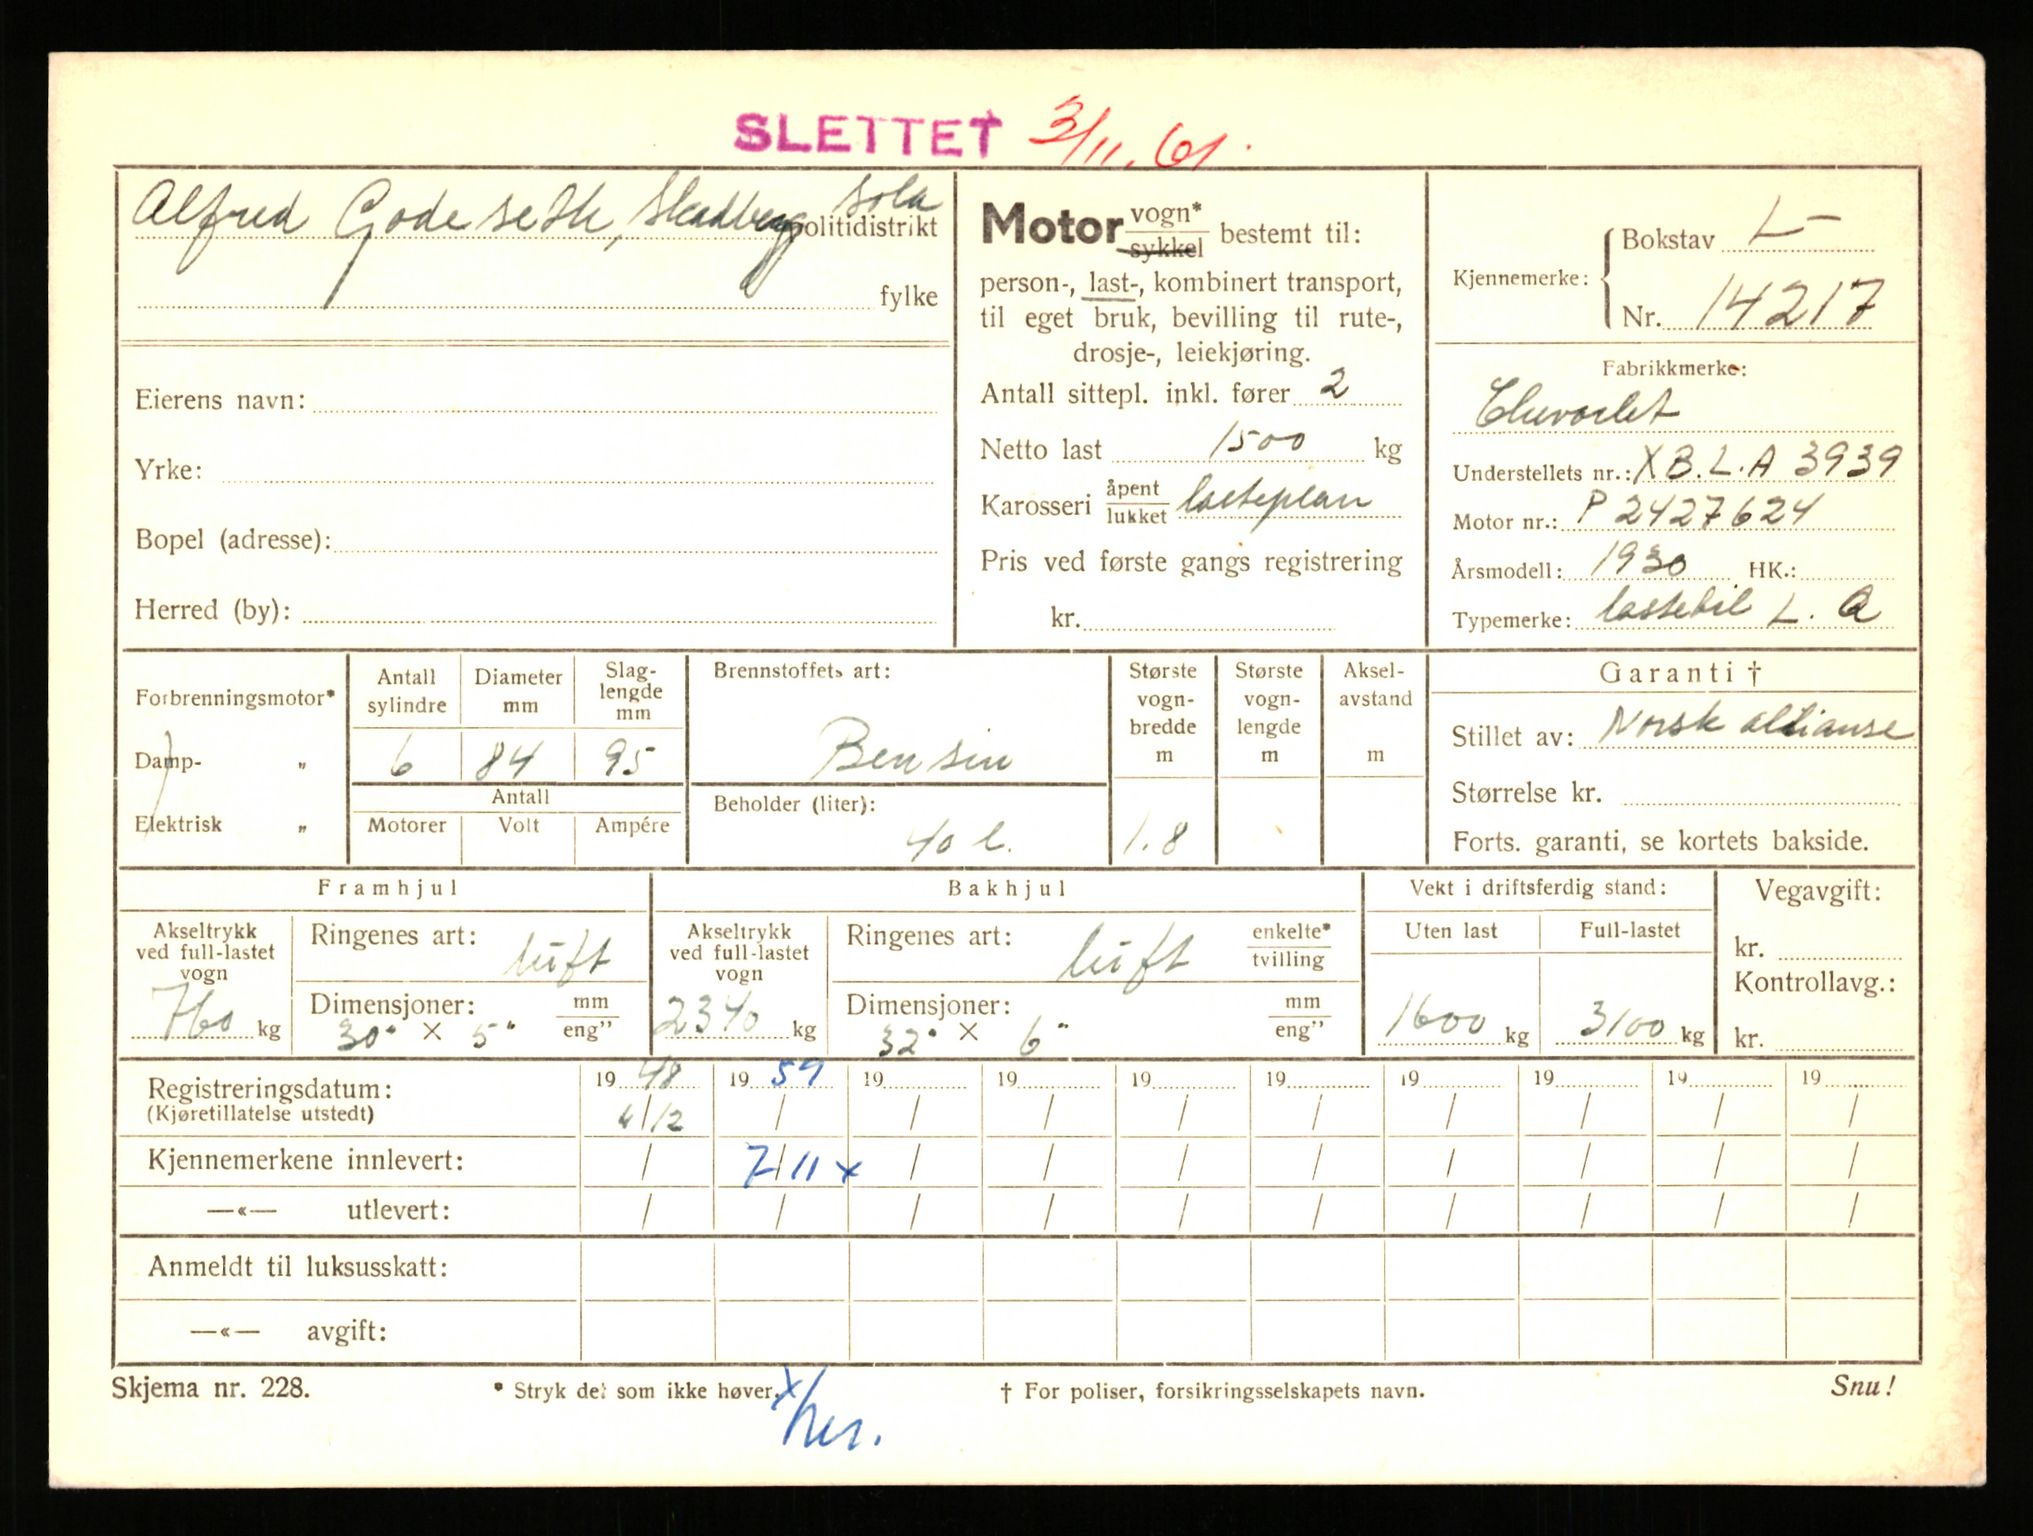 SLETTET 3/11. 61.
Alfred Godeseth, Skadberg Sola
politidistrikt
fylke
Eierens navn:
Yrke:
Bopel (adresse):
Herred (by):
Motor vogn*
sykkel bestemt til:
person-, last-, kombinert transport,
til eget bruk, bevilling til rute-,
drosje-, leiekjøring.
Antall sittepl. inkl. fører 2
Netto last 1500 kg
Karosseri åpent
lukket lasteplan
Pris ved første gangs registrering
kr.
Kjennemerke: Bokstav L-
Nr. 14217
Fabrikkmerke:
Chevorlet
Understellets nr.: XB.L.A 3939
Motor nr.: P 2427624
Årsmodell: 1930 HK.:
Typemerke: lastebil L. A
Forbrenningsmotor*
Damp- "
Elektrisk "
Antall sylindre
Diameter mm
Slag-
lengde
mm
6 84 95
Antall
Motorer Volt Ampére
Brennstoffets art:
Bensin
Beholder (liter):
40 l.
Største
vogn-
bredde
m
1.8
Største
vogn-
lengde
m
Aksel-
avstand
m
Garanti †
Stillet av: Norsk allianse
Størrelse kr.
Forts. garanti, se kortets bakside.
Framhjul
Akseltrykk
ved full-lastet
vogn
760 kg
Ringenes art: luft
Dimensjoner: mm
30" × 5" eng"
Bakhjul
Akseltrykk
ved full-lastet
vogn
2340 kg
Ringenes art: luft enkelte*
tvilling
Dimensjoner: mm
32" × 6" eng"
Vekt i driftsferdig stand:
Uten last Full-lastet
1600 kg 3100 kg
Vegavgift:
kr.
Kontrollavg.:
kr.
Registreringsdatum: 19 48 19 59 19 19 19 19 19 19 19 19
(Kjøretillatelse utstedt) /12 / / / / / / / / /
Kjennemerkene innlevert: / 7/11 x / / / / / / / /
—«— utlevert: / / / / / / / / / /
Anmeldt til luksusskatt:
—«— avgift:
Skjema nr. 228. * Stryk det som ikke høver. † For poliser, forsikringsselskapets navn. Snu!
x/her.